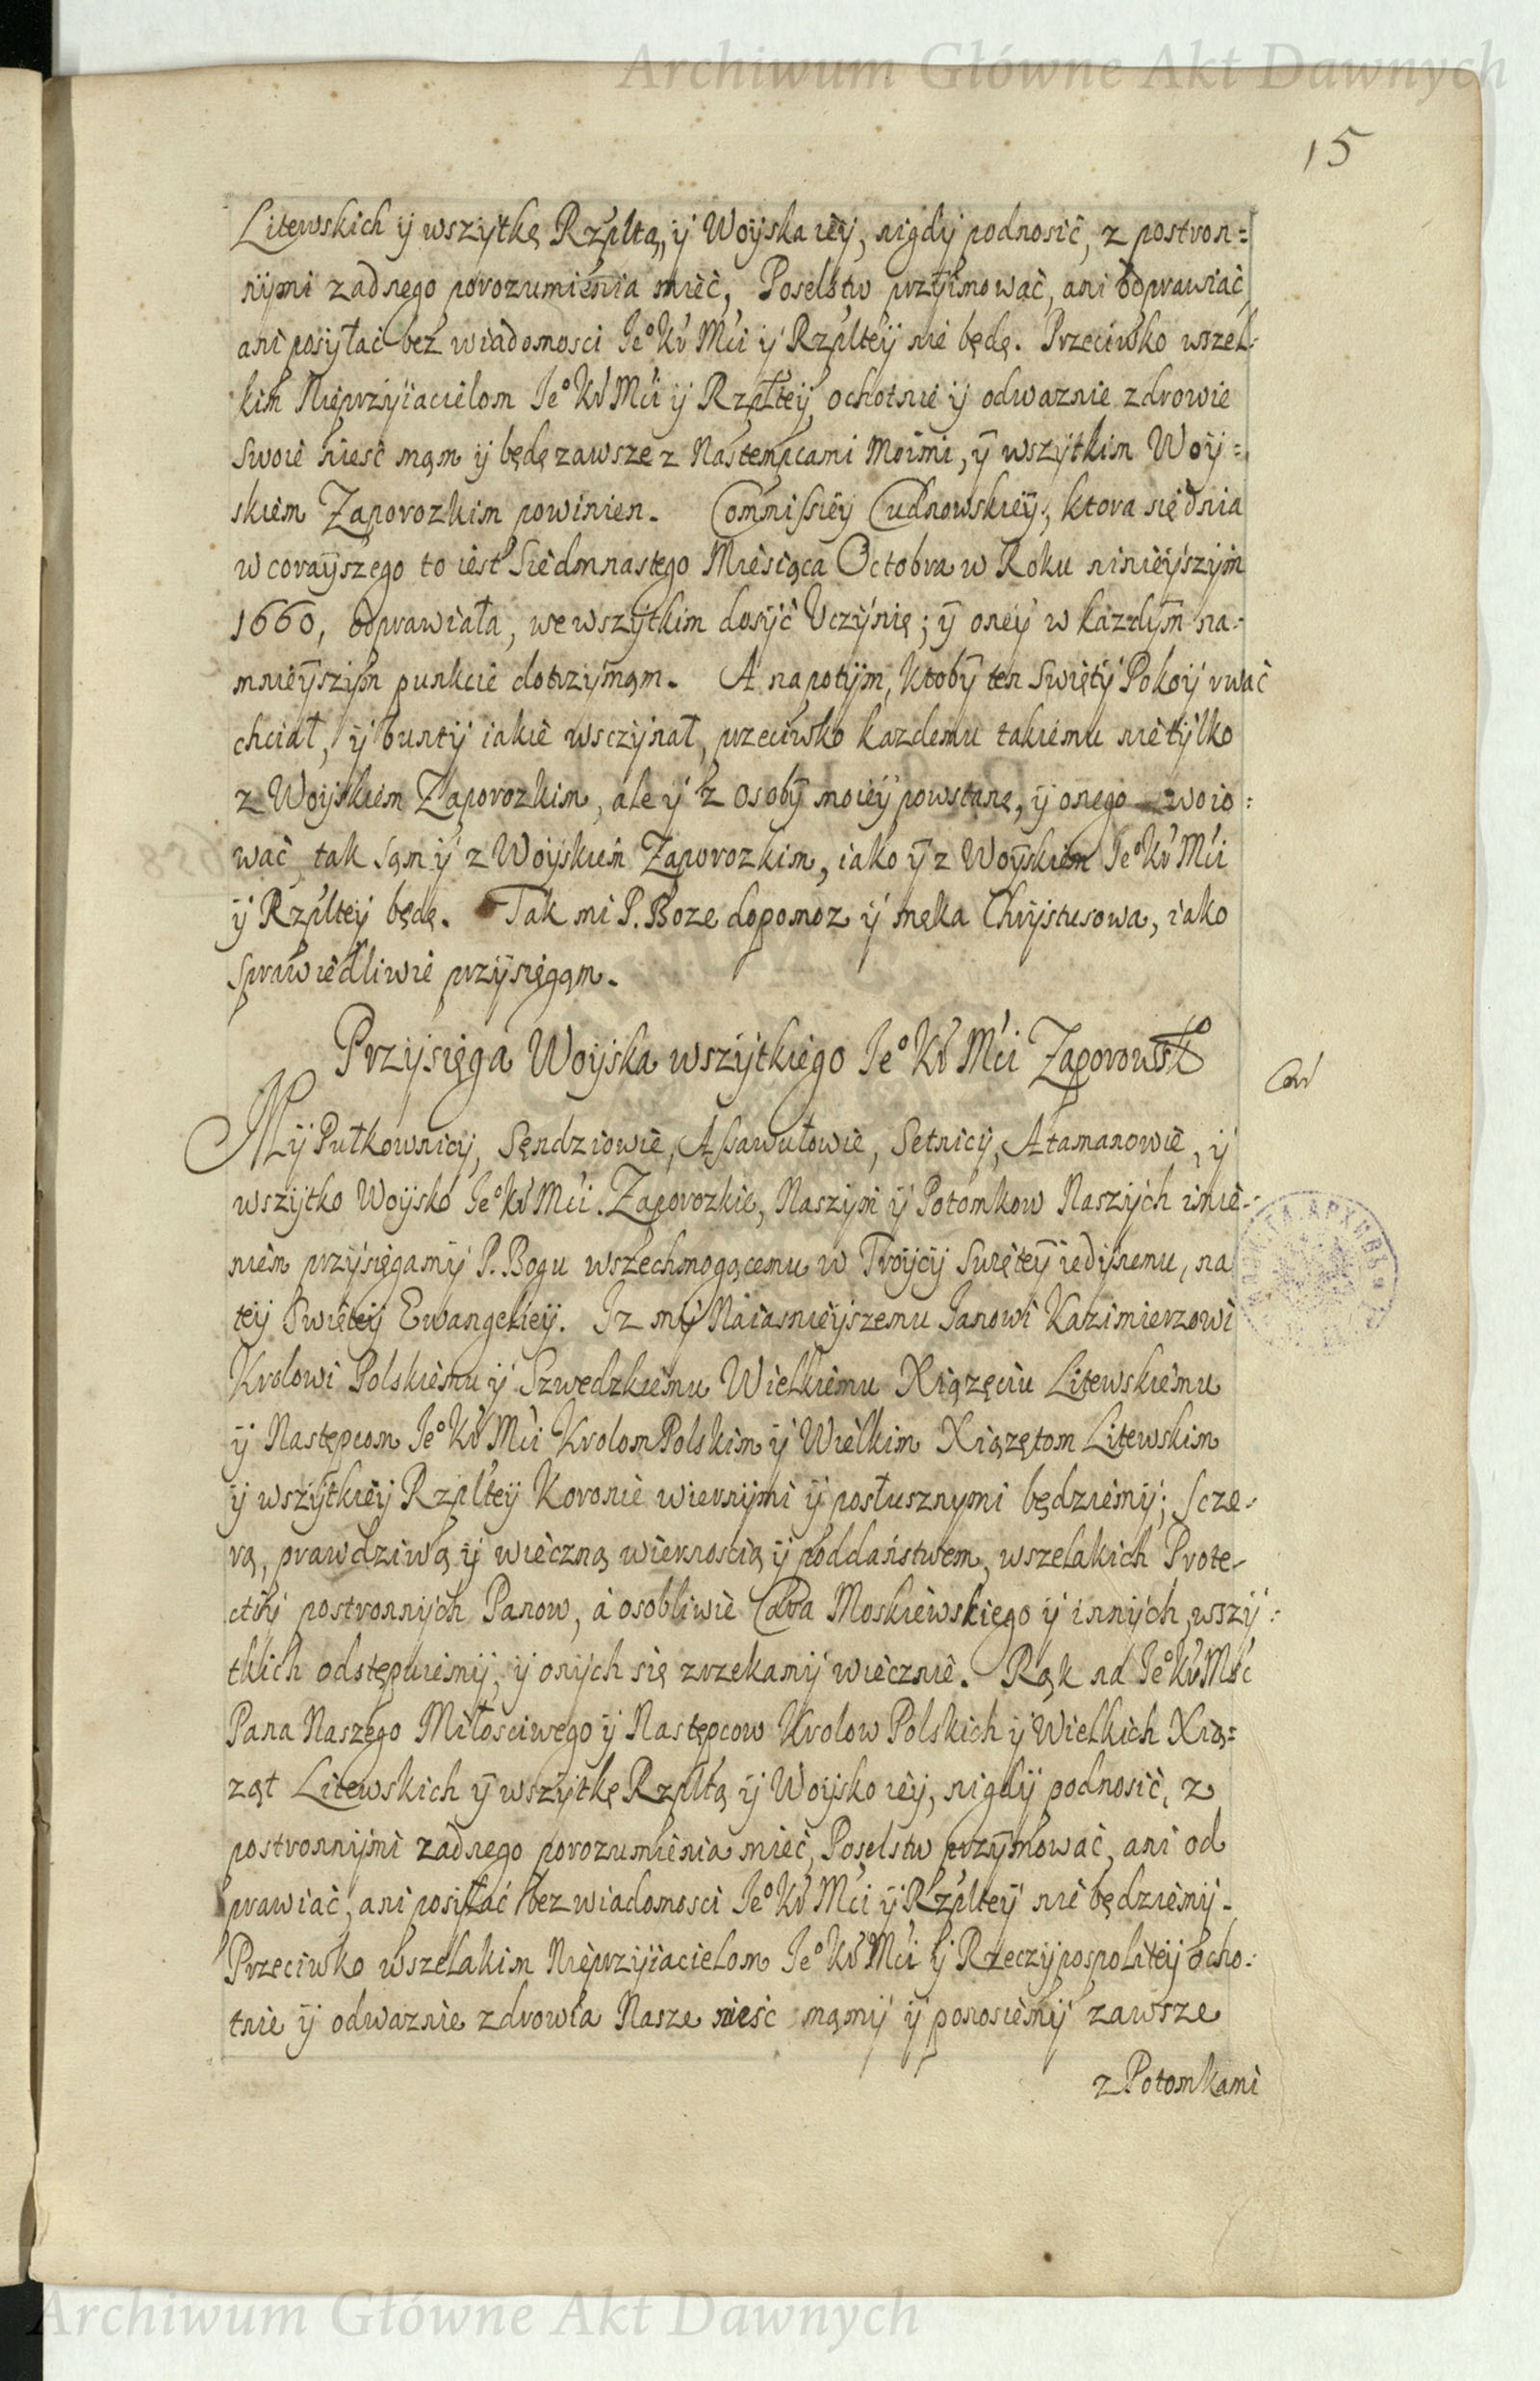 Archiwum Główne Akt Dawnych
15
Litewskich ÿ wszytkę Rzpltą, ÿ Woÿska ieÿ, nigdÿ podnosić, z postron=
nÿmi zadnego porozumienia mieć, Poselstw przÿimować, ani odprawiać,
ani posyłać bez wiadomosci Je° Kr Mći ÿ Rzplteÿ nie będę. Przeciwko wszel-
kim Nieprzÿiacielom Je° Kr Mći ÿ Rzplteÿ, ochotnie ÿ odwaznie zdrowie
swoie niesć mam ÿ będę zawsze z Nastempcami Moimi, ÿ wszytkim Woÿ=
skiem Zaporozkim powinien. Commissieÿ Cudnowskieÿ, ktora się dnia
wcorayszego to iest Siedmnastego Miesiąca Octobra w Roku ninieÿszÿm
1660, odprawiała, we wszytkim dosÿć Vczÿnię; ÿ oneÿ w kazdÿm na-
mnieÿszÿm punkcie dotrzÿmam. A napotÿm, ktobÿ ten Swiętÿ Pokoÿ rwać
chciał, ÿ buntÿ iakie wsczÿnał, przeciwko kazdemu takiemu nietÿlko
z Woÿskiem Zaporozkim, ale ÿ z osobÿ moieÿ powstanę, ÿ onego woio=
wać tak sam ÿ z Woÿskiem Zaporozkim, iako ÿ z Woÿskiem Je° Kr Mći
ÿ Rzplteÿ będę. Tak mi P. Boze dopomoz ÿ męka Chrÿstusowa, iako
sprawiedliwie przÿsięgam.
Przÿsięga Woÿska wszÿtkiego Je° Kr Mći Zaporowsk°
Mÿ Pułkownicÿ, Sędziowie, Assawułowie, Setnicÿ, Atamanowie, ÿ
wszÿtko Woÿsko Je° Kr Mći Zaporozkie, Naszÿm ÿ Potomkow Naszÿch imie-
niem przÿsięgamÿ P. Bogu wszechmogącemu w Troÿcÿ Swięteÿ iedÿnemu, na
teÿ Swięteÿ Ewangelieÿ. Iz mÿ Naiasnieÿszemu Janowi Kazimierzowi
Krolowi Polskiemu ÿ Szwedzkiemu Wielkiemu Xiązęciu Litewskiemu
ÿ Następcom Je° Kr Mći Krolom Polskim ÿ Wielkim Xiązętom Litewskim
ÿ wszÿtkieÿ Rzplteÿ Koronie wiernÿmi ÿ posłusznymi będziemÿ; scze-
rą, prawdziwą ÿ wieczną wiernoscią ÿ poddaństwem, wszelakich Prote-
ctiÿ postronnÿch Panow, à osobliwie Cara Moskiewskiego ÿ innÿch wszÿ=
tkich odstępuiemÿ, ÿ onÿch się zrzekamÿ wiecznie. Rąk na Je° Kr Mść
Pana Naszego Miłosciwego ÿ Następcow Krolow Polskich ÿ Wielkich Xią=
ząt Litewskich ÿ wszÿtkę Rzpltą ÿ Woÿsko ieÿ, nigdÿ podnosić, z
postronnÿmi zadnego porozumienia mieć, Poselstw przÿmować, ani od
prawiać, ani posÿłać bez wiadomosci Je° Kr Mći ÿ Rzplteÿ nie będziemÿ.
Przeciwko wszelakim Nieprzÿiacielom Je° Kr Mći ÿ Rzeczÿpospoliteÿ ocho=
tnie ÿ odwaznie zdrowia Nasze niesć mamÿ ÿ ponosiemÿ zawsze
z Potomkami
Archiwum Główne Akt Dawnych